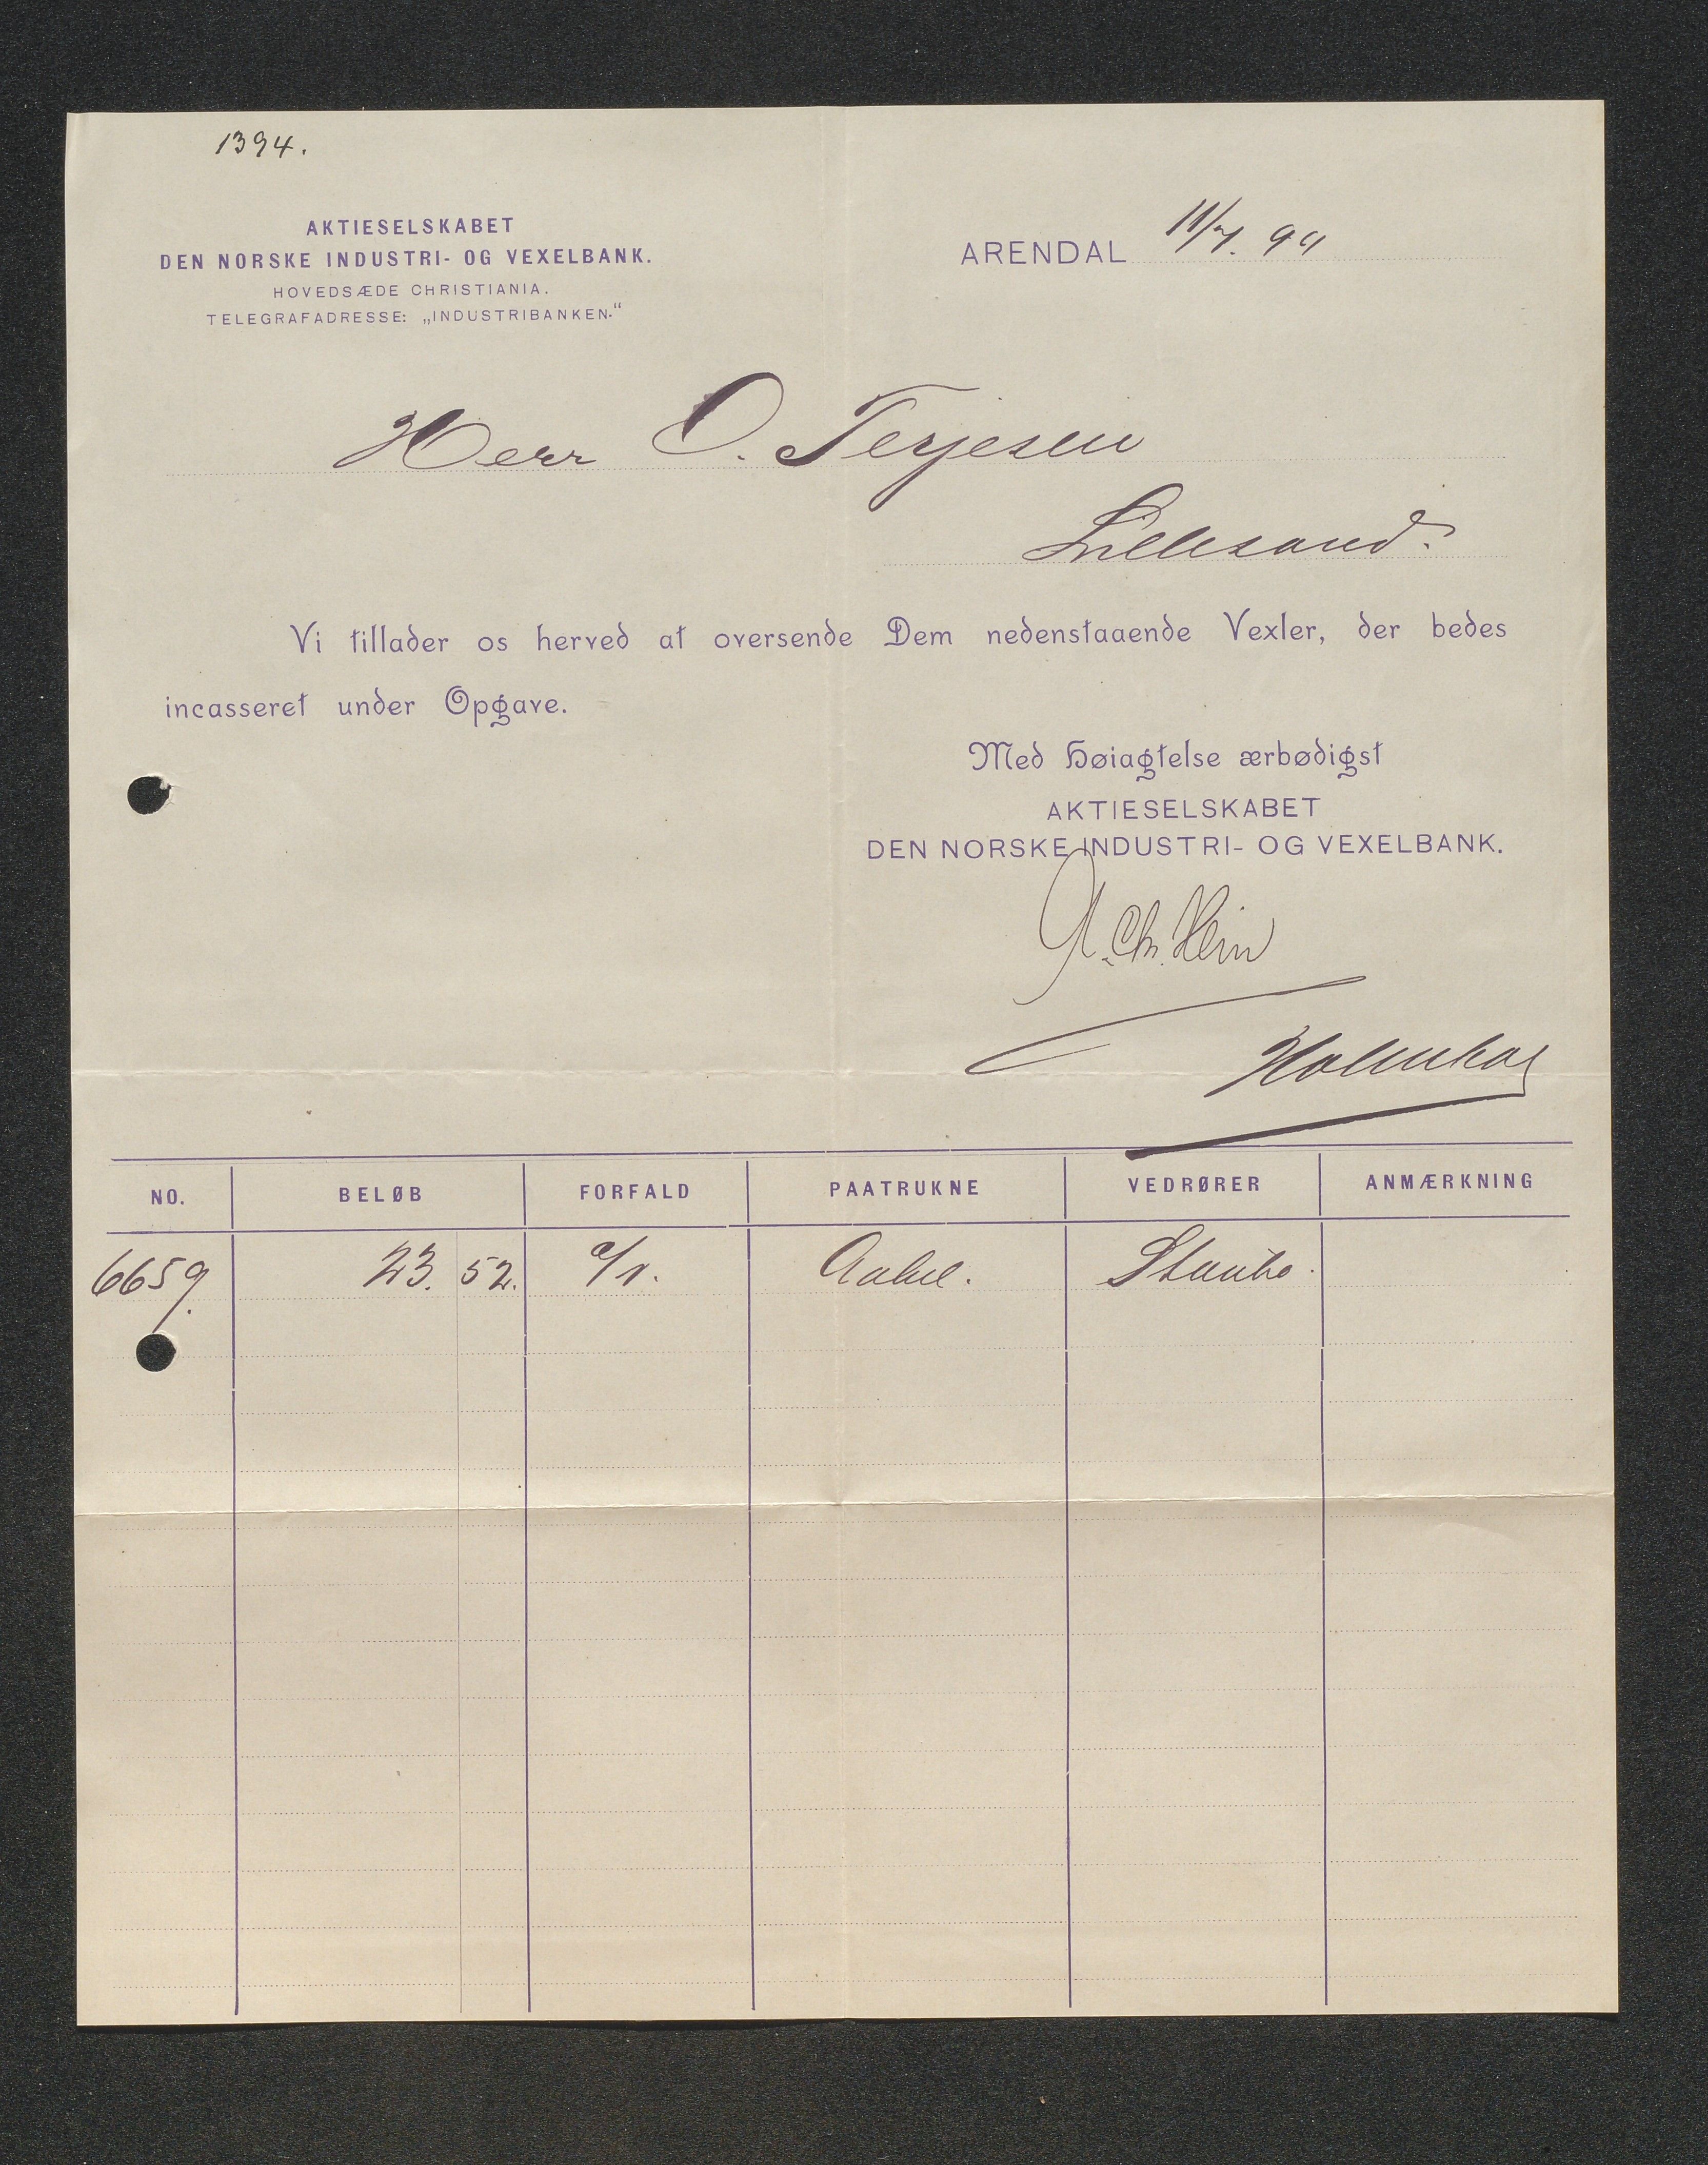 1394.
AKTIESELSKABET
DEN NORSKE INDUSTRI- OG VEXELBANK.
HOVEDSÆDE CHRISTIANIA.
TELEGRAFADRESSE: „INDUSTRIBANKEN."
ARENDAL 11/7. 99
Herr O. Terjesen
Lillesand.
Vi tillader os herved at oversende Dem nedenstaaende Vexler, der bedes
incasseret under Opgave.
Med Høiagtelse ærbødigst
AKTIESELSKABET
DEN NORSKE INDUSTRI- OG VEXELBANK.
Chr.
NO. BELØB FORFALD PAATRUKNE VEDRØRER ANMÆRKNING
6659. 23. 52. a/v.